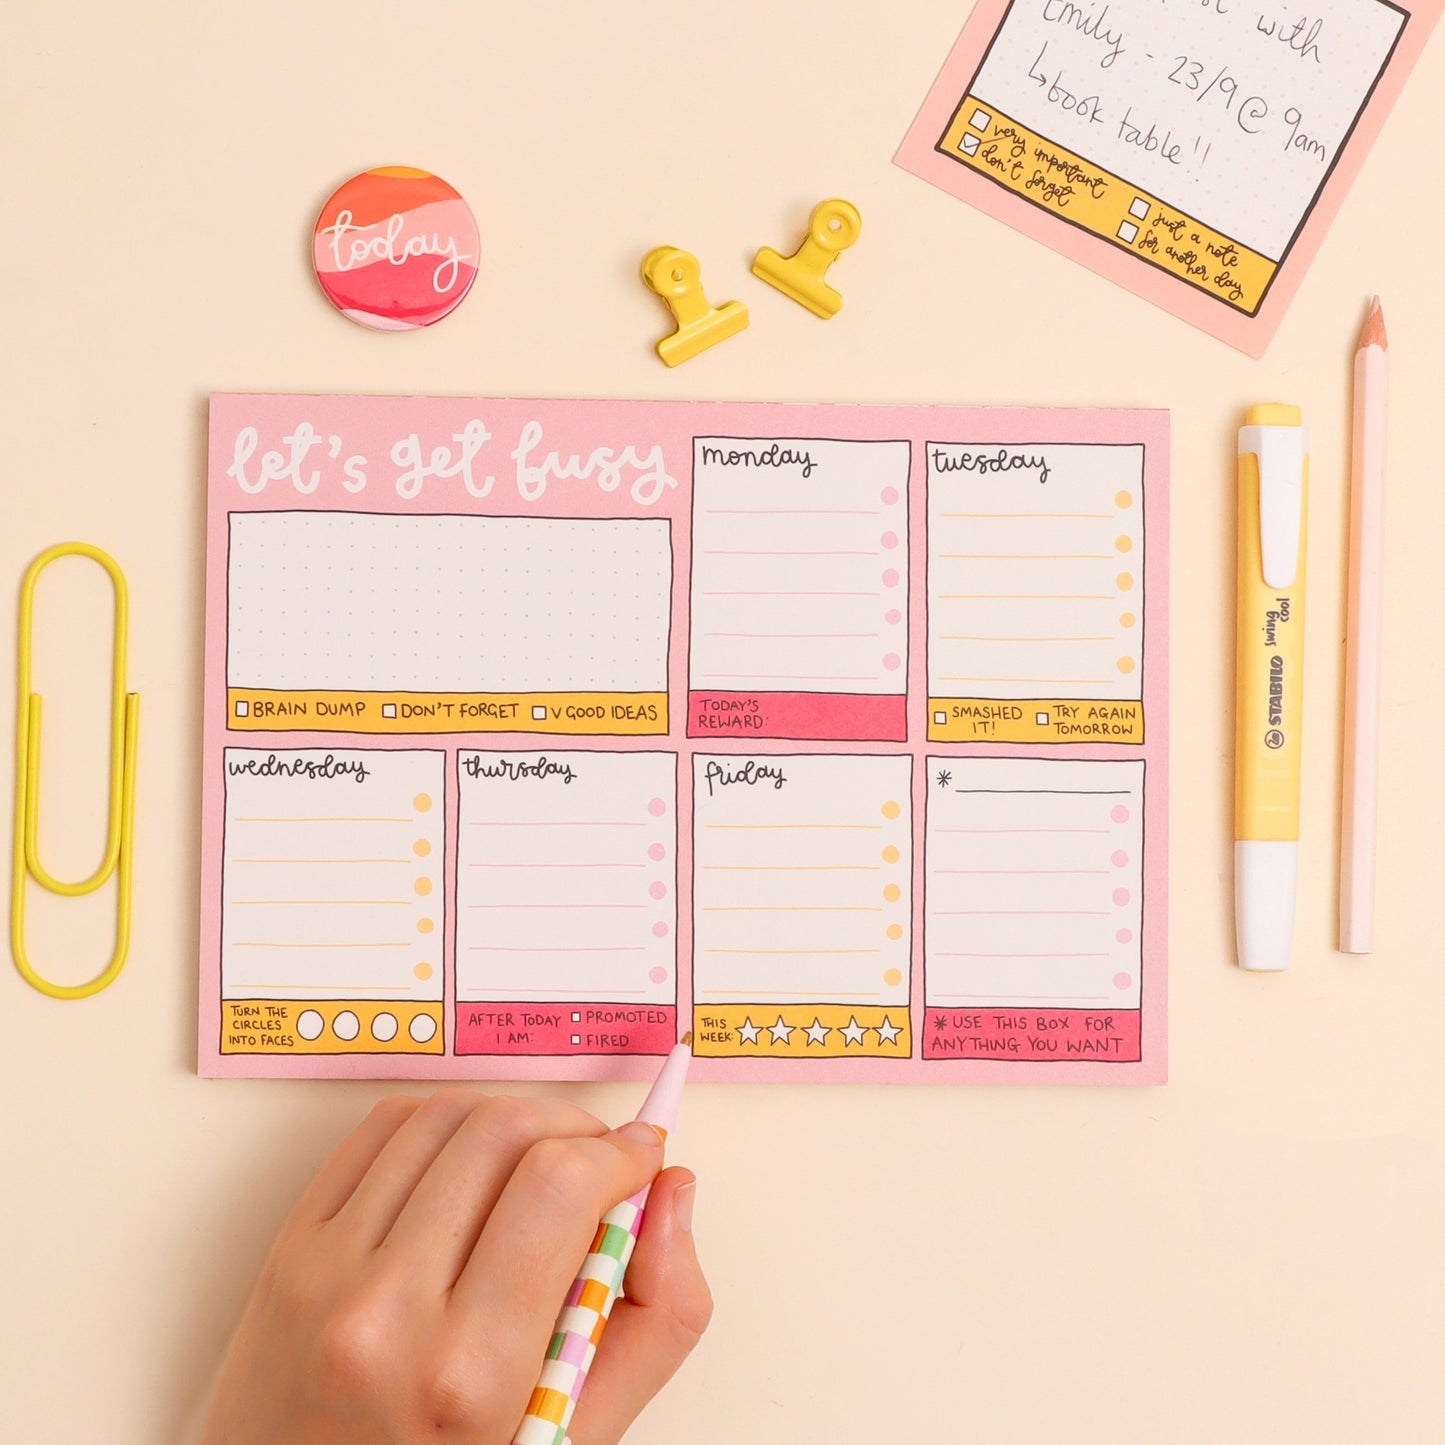 with
Emily - 23/9 @ 9am
↳book table!!
very important
don't forget
just a note
for another day
today
let's get busy
BRAIN DUMP
DON'T FORGET
V GOOD IDEAS
monday
TODAY'S
REWARD:
tuesday
SMASHED
IT!
TRY AGAIN
TOMORROW
wednesday
TURN THE
CIRCLES
INTO FACES
thursday
AFTER TODAY
I AM:
PROMOTED
FIRED
friday
THIS
WEEK:
*
* USE THIS BOX FOR
ANYTHING YOU WANT
STABILO swing
cool